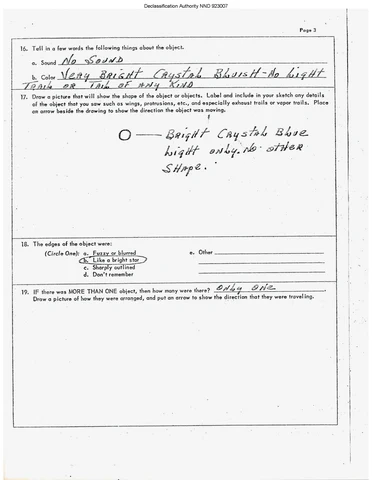 Declassification Authority NND 923007
Page 3
16. Tell in a few words the following things about the object.
a. Sound No Sound
b. Color Very Bright Crystal Bluish-No Light
Trail or Tail of Any Kind
17. Draw a picture that will show the shape of the object or objects. Label and include in your sketch any details
of the object that you saw such as wings, protrusions, etc., and especially exhaust trails or vapor trails. Place
an arrow beside the drawing to show the direction the object was moving.
Bright Crystal Blue
Light only. No other
Shape.
18. The edges of the object were:
(Circle One): a. Fuzzy or blurred
b. Like a bright star
c. Sharply outlined
d. Don't remember
e. Other
19. IF there was MORE THAN ONE object, then how many were there? only one
Draw a picture of how they were arranged, and put an arrow to show the direction that they were traveling.